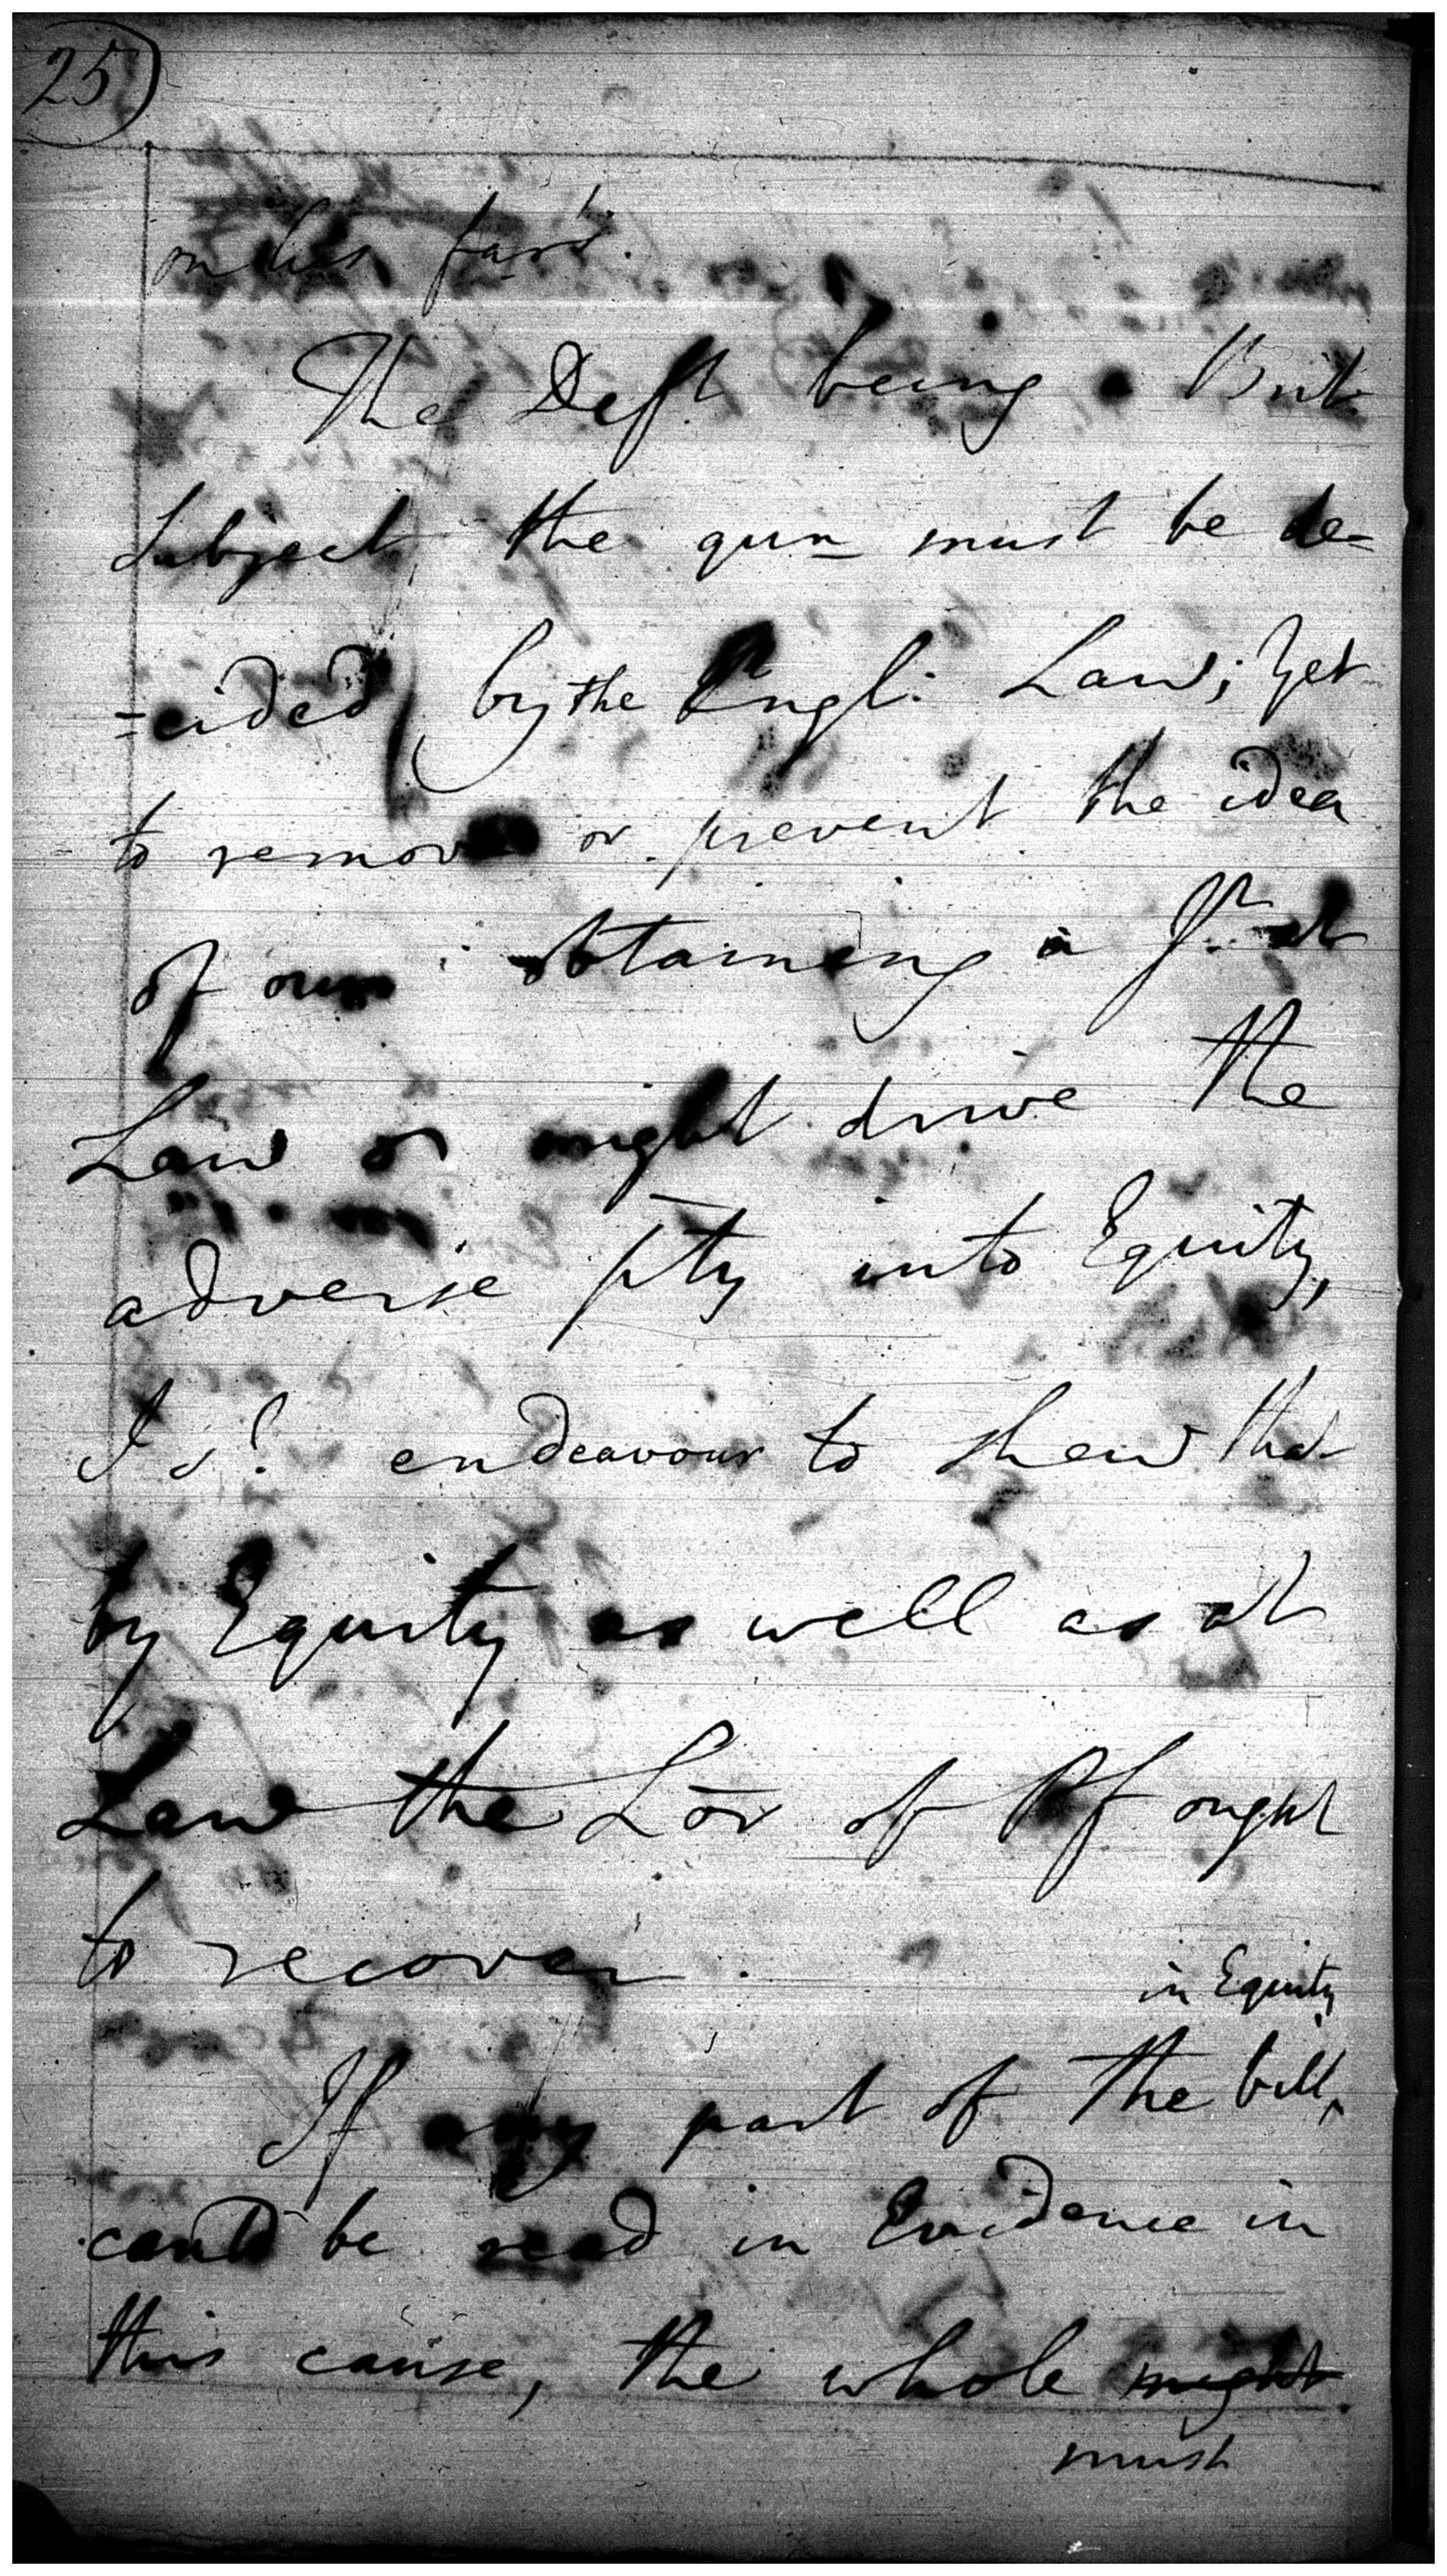 25
on his part.
The Deft. being a Brit.
Subject the qun must be de=
=cided by the Engl: Law; Yet
to remove or prevent the idea
of our obtaining a Jt. at
Law or might drive the
adverse pty into Equity,
I sd. endeavour to shew that
by Equity as well as at
Law the Lōr of Pf ought
to recover.
in Equity
If any part of the bill,
could be read in Evidence in
this cause, the whole might
must